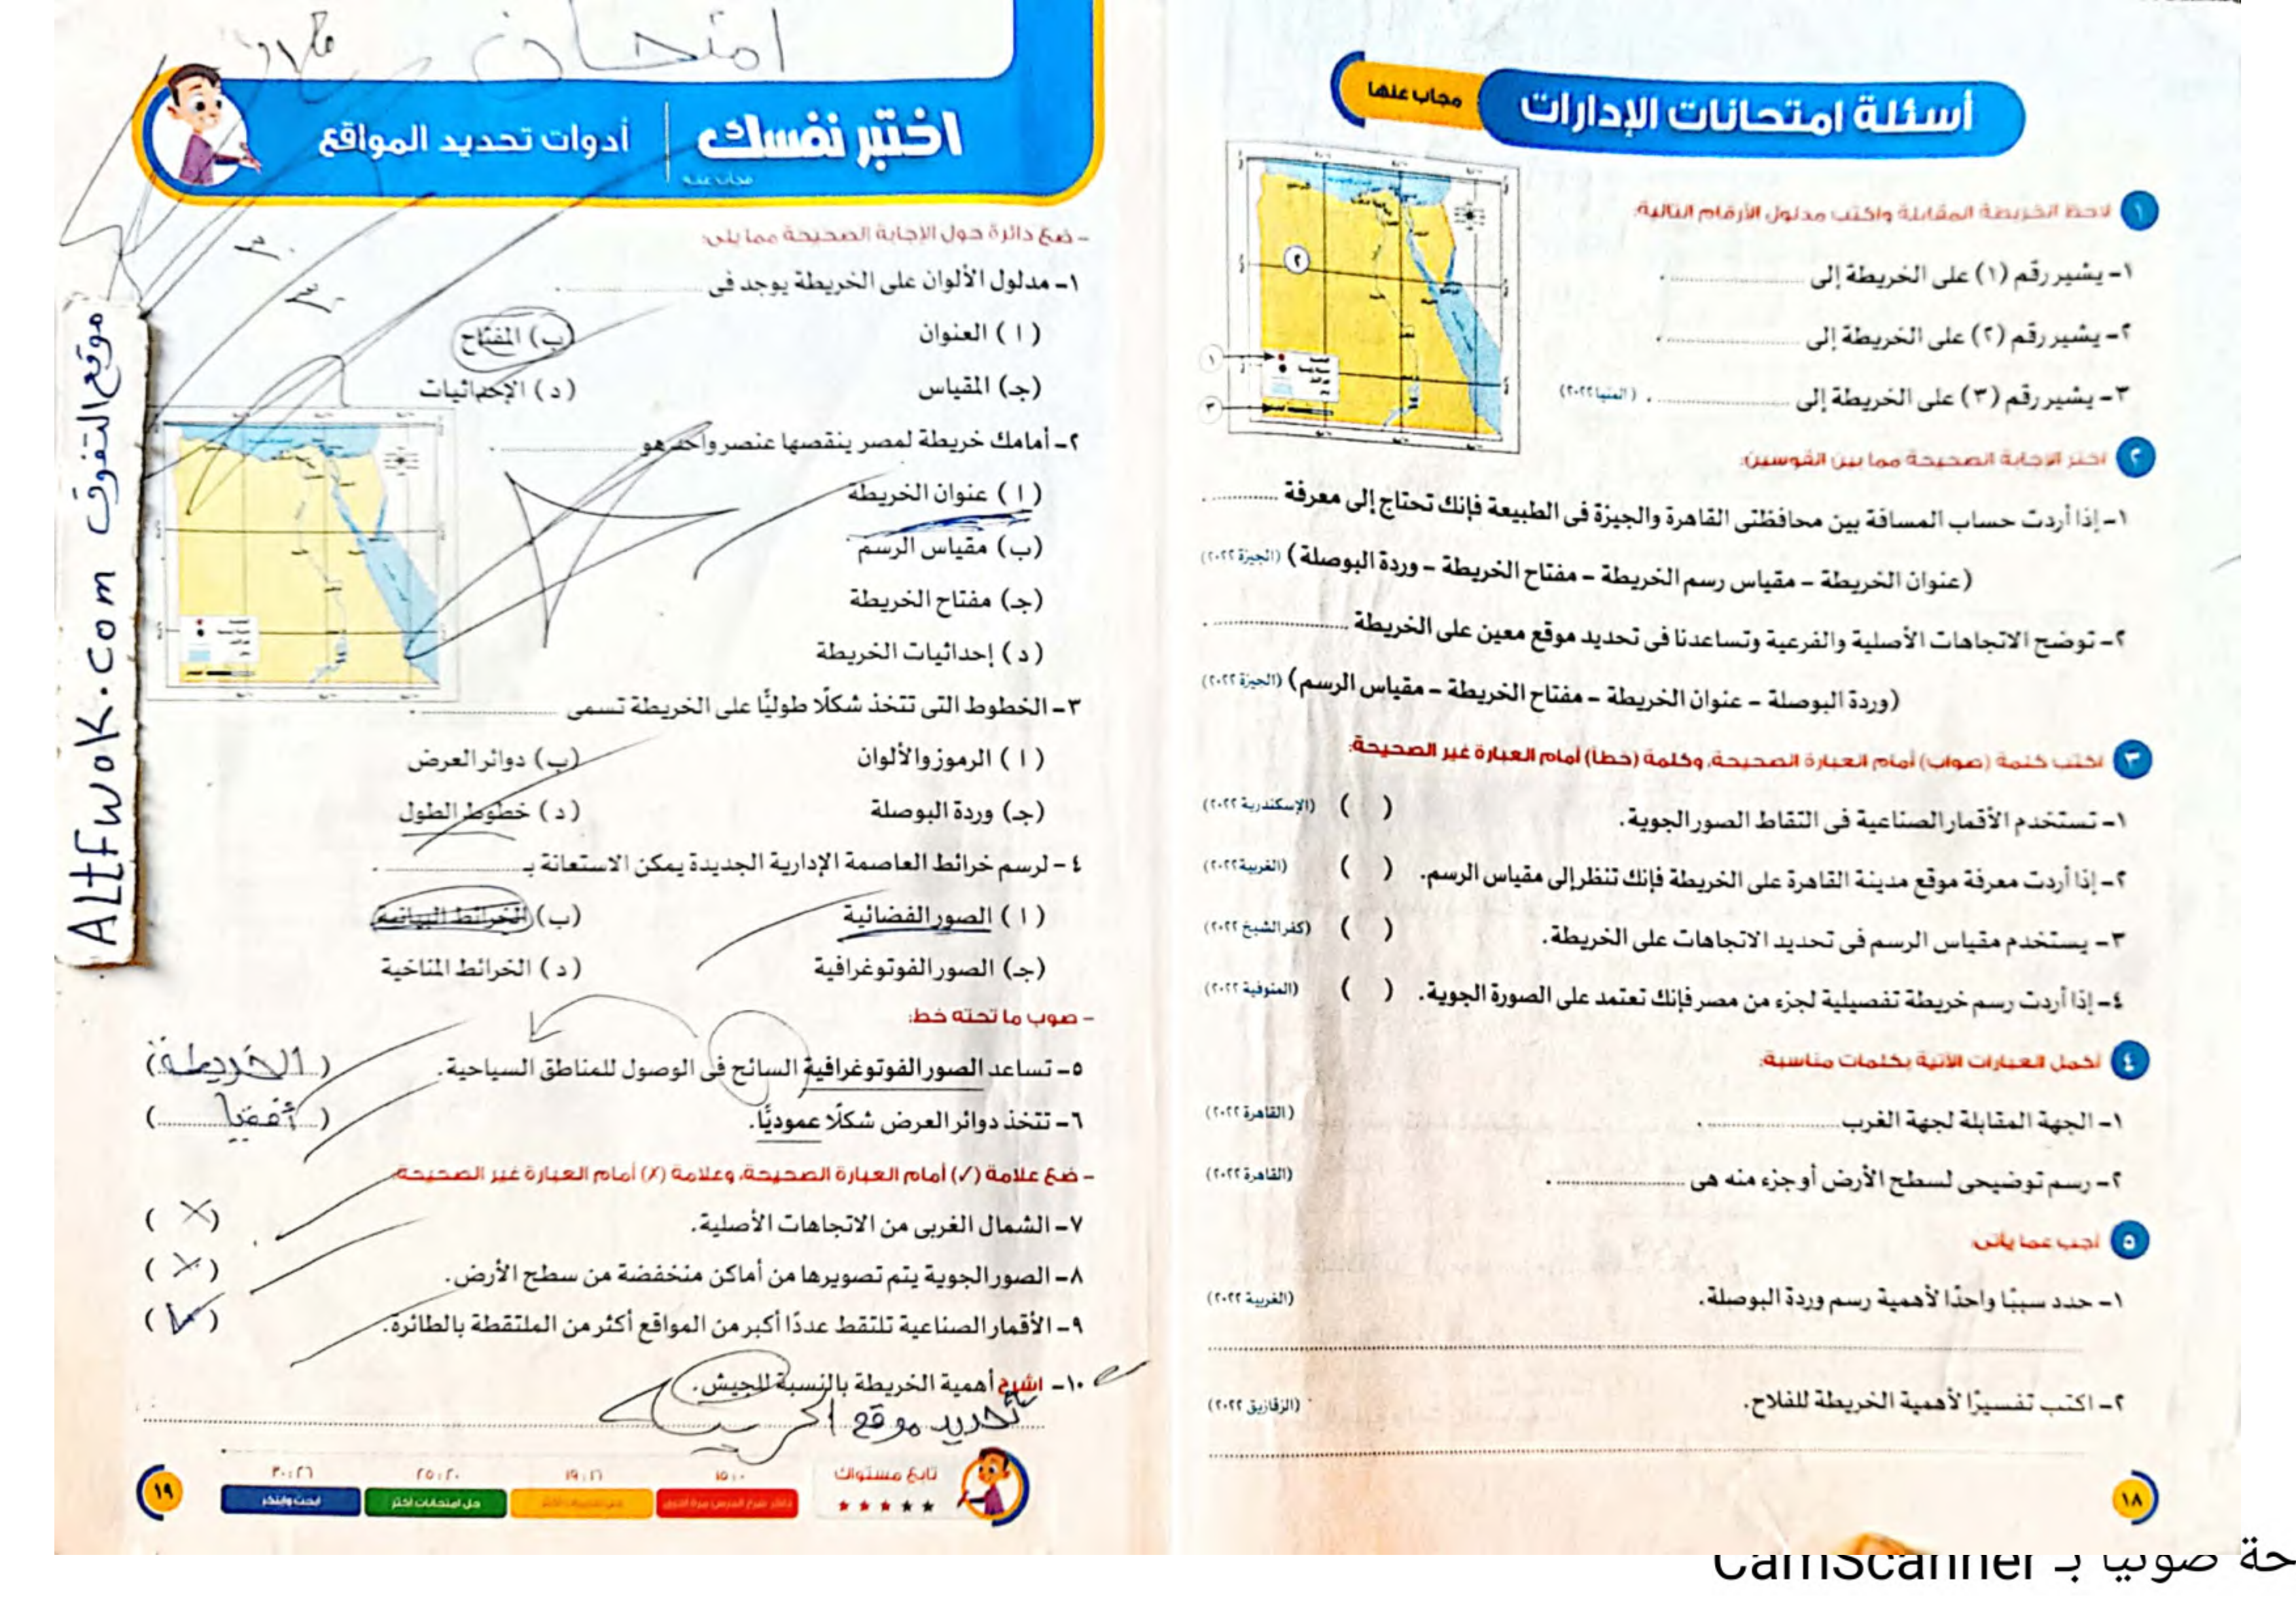 أسئلة امتحانات الإدارات
مجاب عنها
١ لاحظ الخريطة المقابلة واكتب مدلول الأرقام التالية:
١- يشير رقم (١) على الخريطة إلى ............ .
٢- يشير رقم (٢) على الخريطة إلى ............ .
٣- يشير رقم (٣) على الخريطة إلى ............ . (المنيا ٢٠٢٢)
٢
١
٣
٢ اختر الإجابة الصحيحة مما بين القوسين:
١- إذا أردت حساب المسافة بين محافظتى القاهرة والجيزة فى الطبيعة فإنك تحتاج إلى معرفة ............ .
(عنوان الخريطة – مقياس رسم الخريطة – مفتاح الخريطة – وردة البوصلة) (الجيزة ٢٠٢٢)
٢- توضح الاتجاهات الأصلية والفرعية وتساعدنا فى تحديد موقع معين على الخريطة ............ .
(وردة البوصلة – عنوان الخريطة – مفتاح الخريطة – مقياس الرسم) (الجيزة ٢٠٢٢)
٣ اكتب كلمة (صواب) أمام العبارة الصحيحة، وكلمة (خطأ) أمام العبارة غير الصحيحة:
١- تستخدم الأقمار الصناعية فى التقاط الصور الجوية. ( ) (الإسكندرية ٢٠٢٢)
٢- إذا أردت معرفة موقع مدينة القاهرة على الخريطة فإنك تنظر إلى مقياس الرسم. ( ) (الغربية ٢٠٢٢)
٣- يستخدم مقياس الرسم فى تحديد الاتجاهات على الخريطة. ( ) (كفر الشيخ ٢٠٢٢)
٤- إذا أردت رسم خريطة تفصيلية لجزء من مصر فإنك تعتمد على الصورة الجوية. ( ) (المنوفية ٢٠٢٢)
٤ أكمل العبارات الآتية بكلمات مناسبة:
١- الجهة المقابلة لجهة الغرب ............ . (القاهرة ٢٠٢٢)
٢- رسم توضيحى لسطح الأرض أو جزء منه هى ............ . (القاهرة ٢٠٢٢)
٥ أجب عما يأتى:
١- حدد سببًا واحدًا لأهمية رسم وردة البوصلة. (الغربية ٢٠٢٢)
٢- اكتب تفسيرًا لأهمية الخريطة للفلاح. (الزقازيق ٢٠٢٢)
١٨
امتحان
اختبر نفسك
أدوات تحديد المواقع
مجاب عنه
٣٠
٣٠
- ضع دائرة حول الإجابة الصحيحة مما يلى:
١- مدلول الألوان على الخريطة يوجد فى ............ .
( ا ) العنوان (ب) المفتاح
(جـ) المقياس ( د ) الإحداثيات
٢- أمامك خريطة لمصر ينقصها عنصر واحد هو ............ .
( ا ) عنوان الخريطة
(ب) مقياس الرسم
(جـ) مفتاح الخريطة
( د ) إحداثيات الخريطة
٣- الخطوط التى تتخذ شكلًا طوليًا على الخريطة تسمى ............ .
( ا ) الرموز والألوان (ب) دوائر العرض
(جـ) وردة البوصلة ( د ) خطوط الطول
٤- لرسم خرائط العاصمة الإدارية الجديدة يمكن الاستعانة بـ ............ .
( ا ) الصور الفضائية (ب) الخرائط البيانية
(جـ) الصور الفوتوغرافية ( د ) الخرائط المناخية
- صوب ما تحته خط:
٥- تساعد الصور الفوتوغرافية السائح فى الوصول للمناطق السياحية. (الخريطة)
٦- تتخذ دوائر العرض شكلًا عموديًّا. (أفقيا)
- ضع علامة (✓) أمام العبارة الصحيحة، وعلامة (✗) أمام العبارة غير الصحيحة:
٧- الشمال الغربى من الاتجاهات الأصلية. (✗)
٨- الصور الجوية يتم تصويرها من أماكن منخفضة من سطح الأرض. (✗)
٩- الأقمار الصناعية تلتقط عددًا أكبر من المواقع أكثر من الملتقطة بالطائرة. (✓)
١٠- اشرح أهمية الخريطة بالنسبة للجيش.
تحديد موقع
تابع مستواك
٠ : ١٥
١٦ : ١٩
٢٠ : ٢٥
٢٦ : ٣٠
ذاكر شرح الدرس مرة أخرى
حل امتحانات أكثر
ابحث وابتكر
١٩
موقع التفوق ALtFwoK.com
حة ضوئيا بـ CamScanner